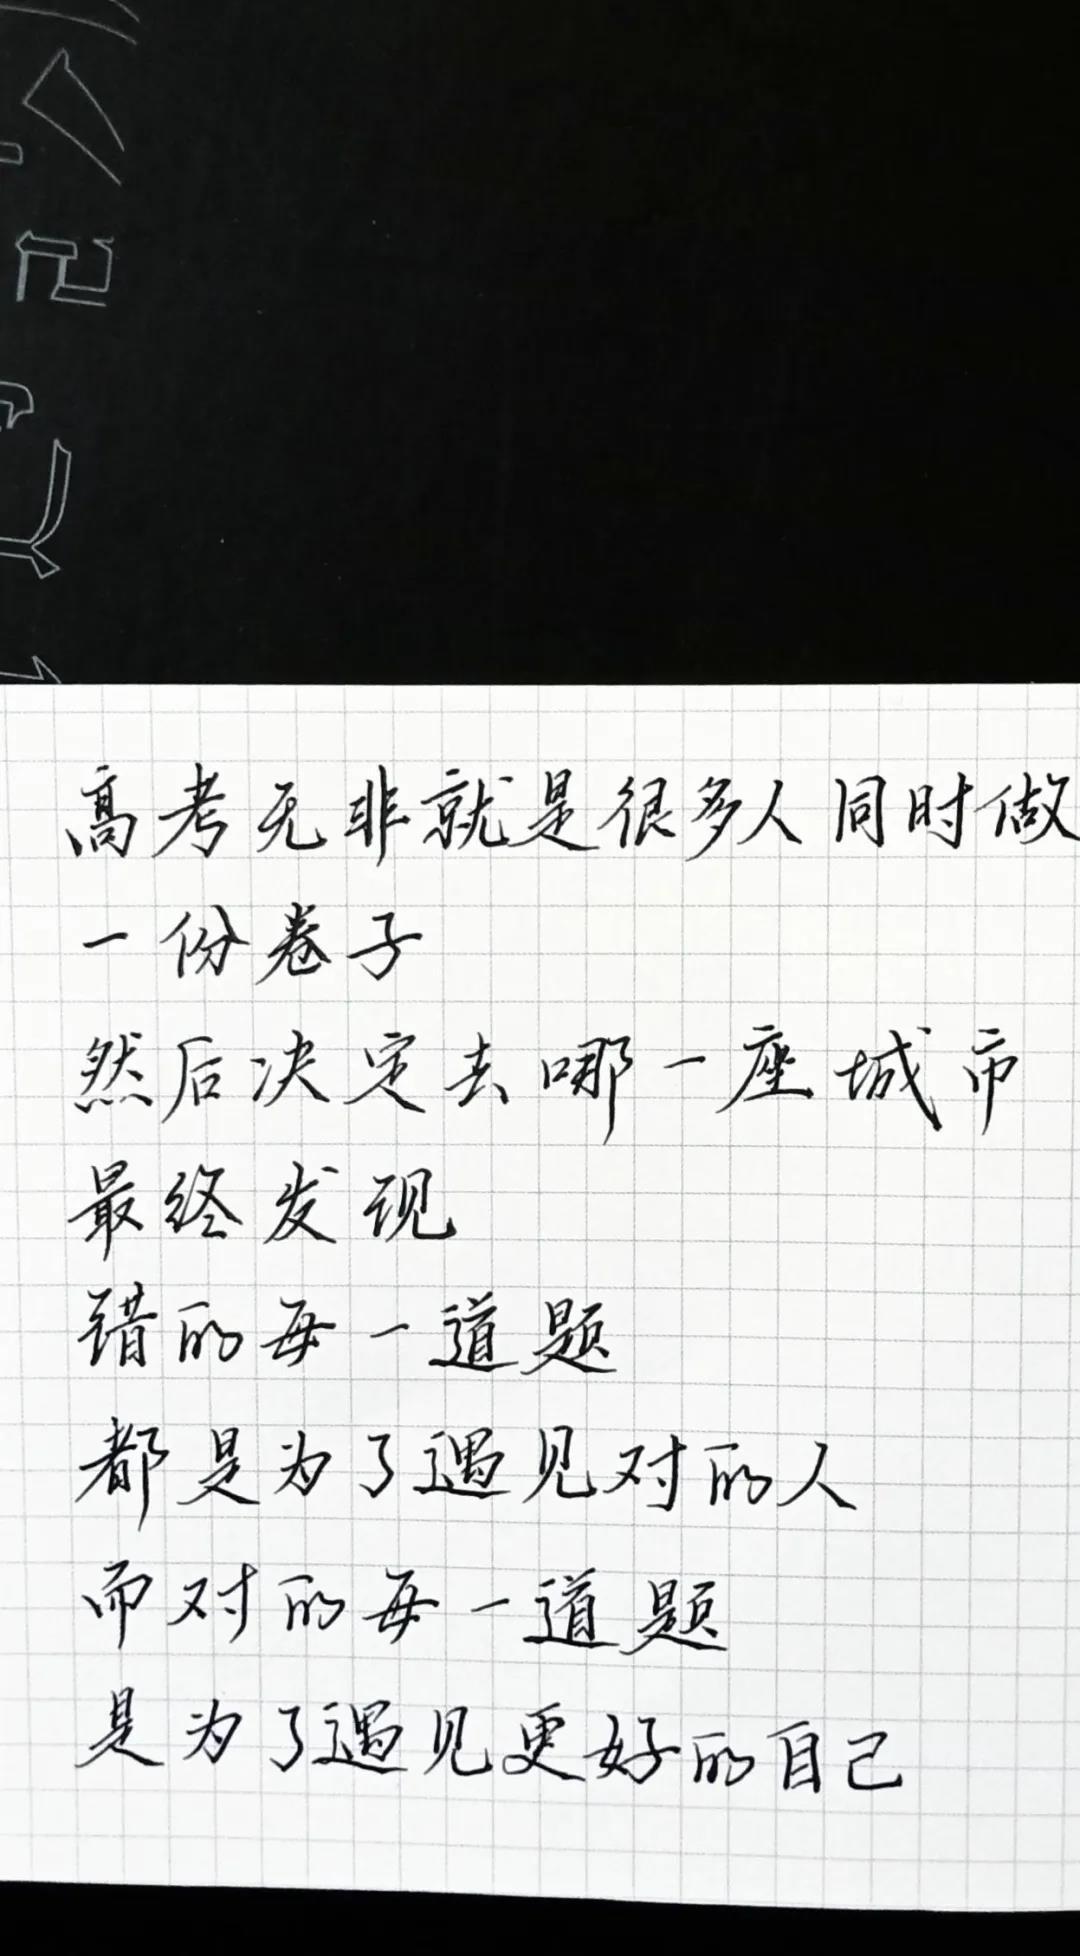 高考无非就是很多人同时做
一份卷子
然后决定去哪一座城市
最终发现
错的每一道题
都是为了遇见对的人
而对的每一道题
是为了遇见更好的自己